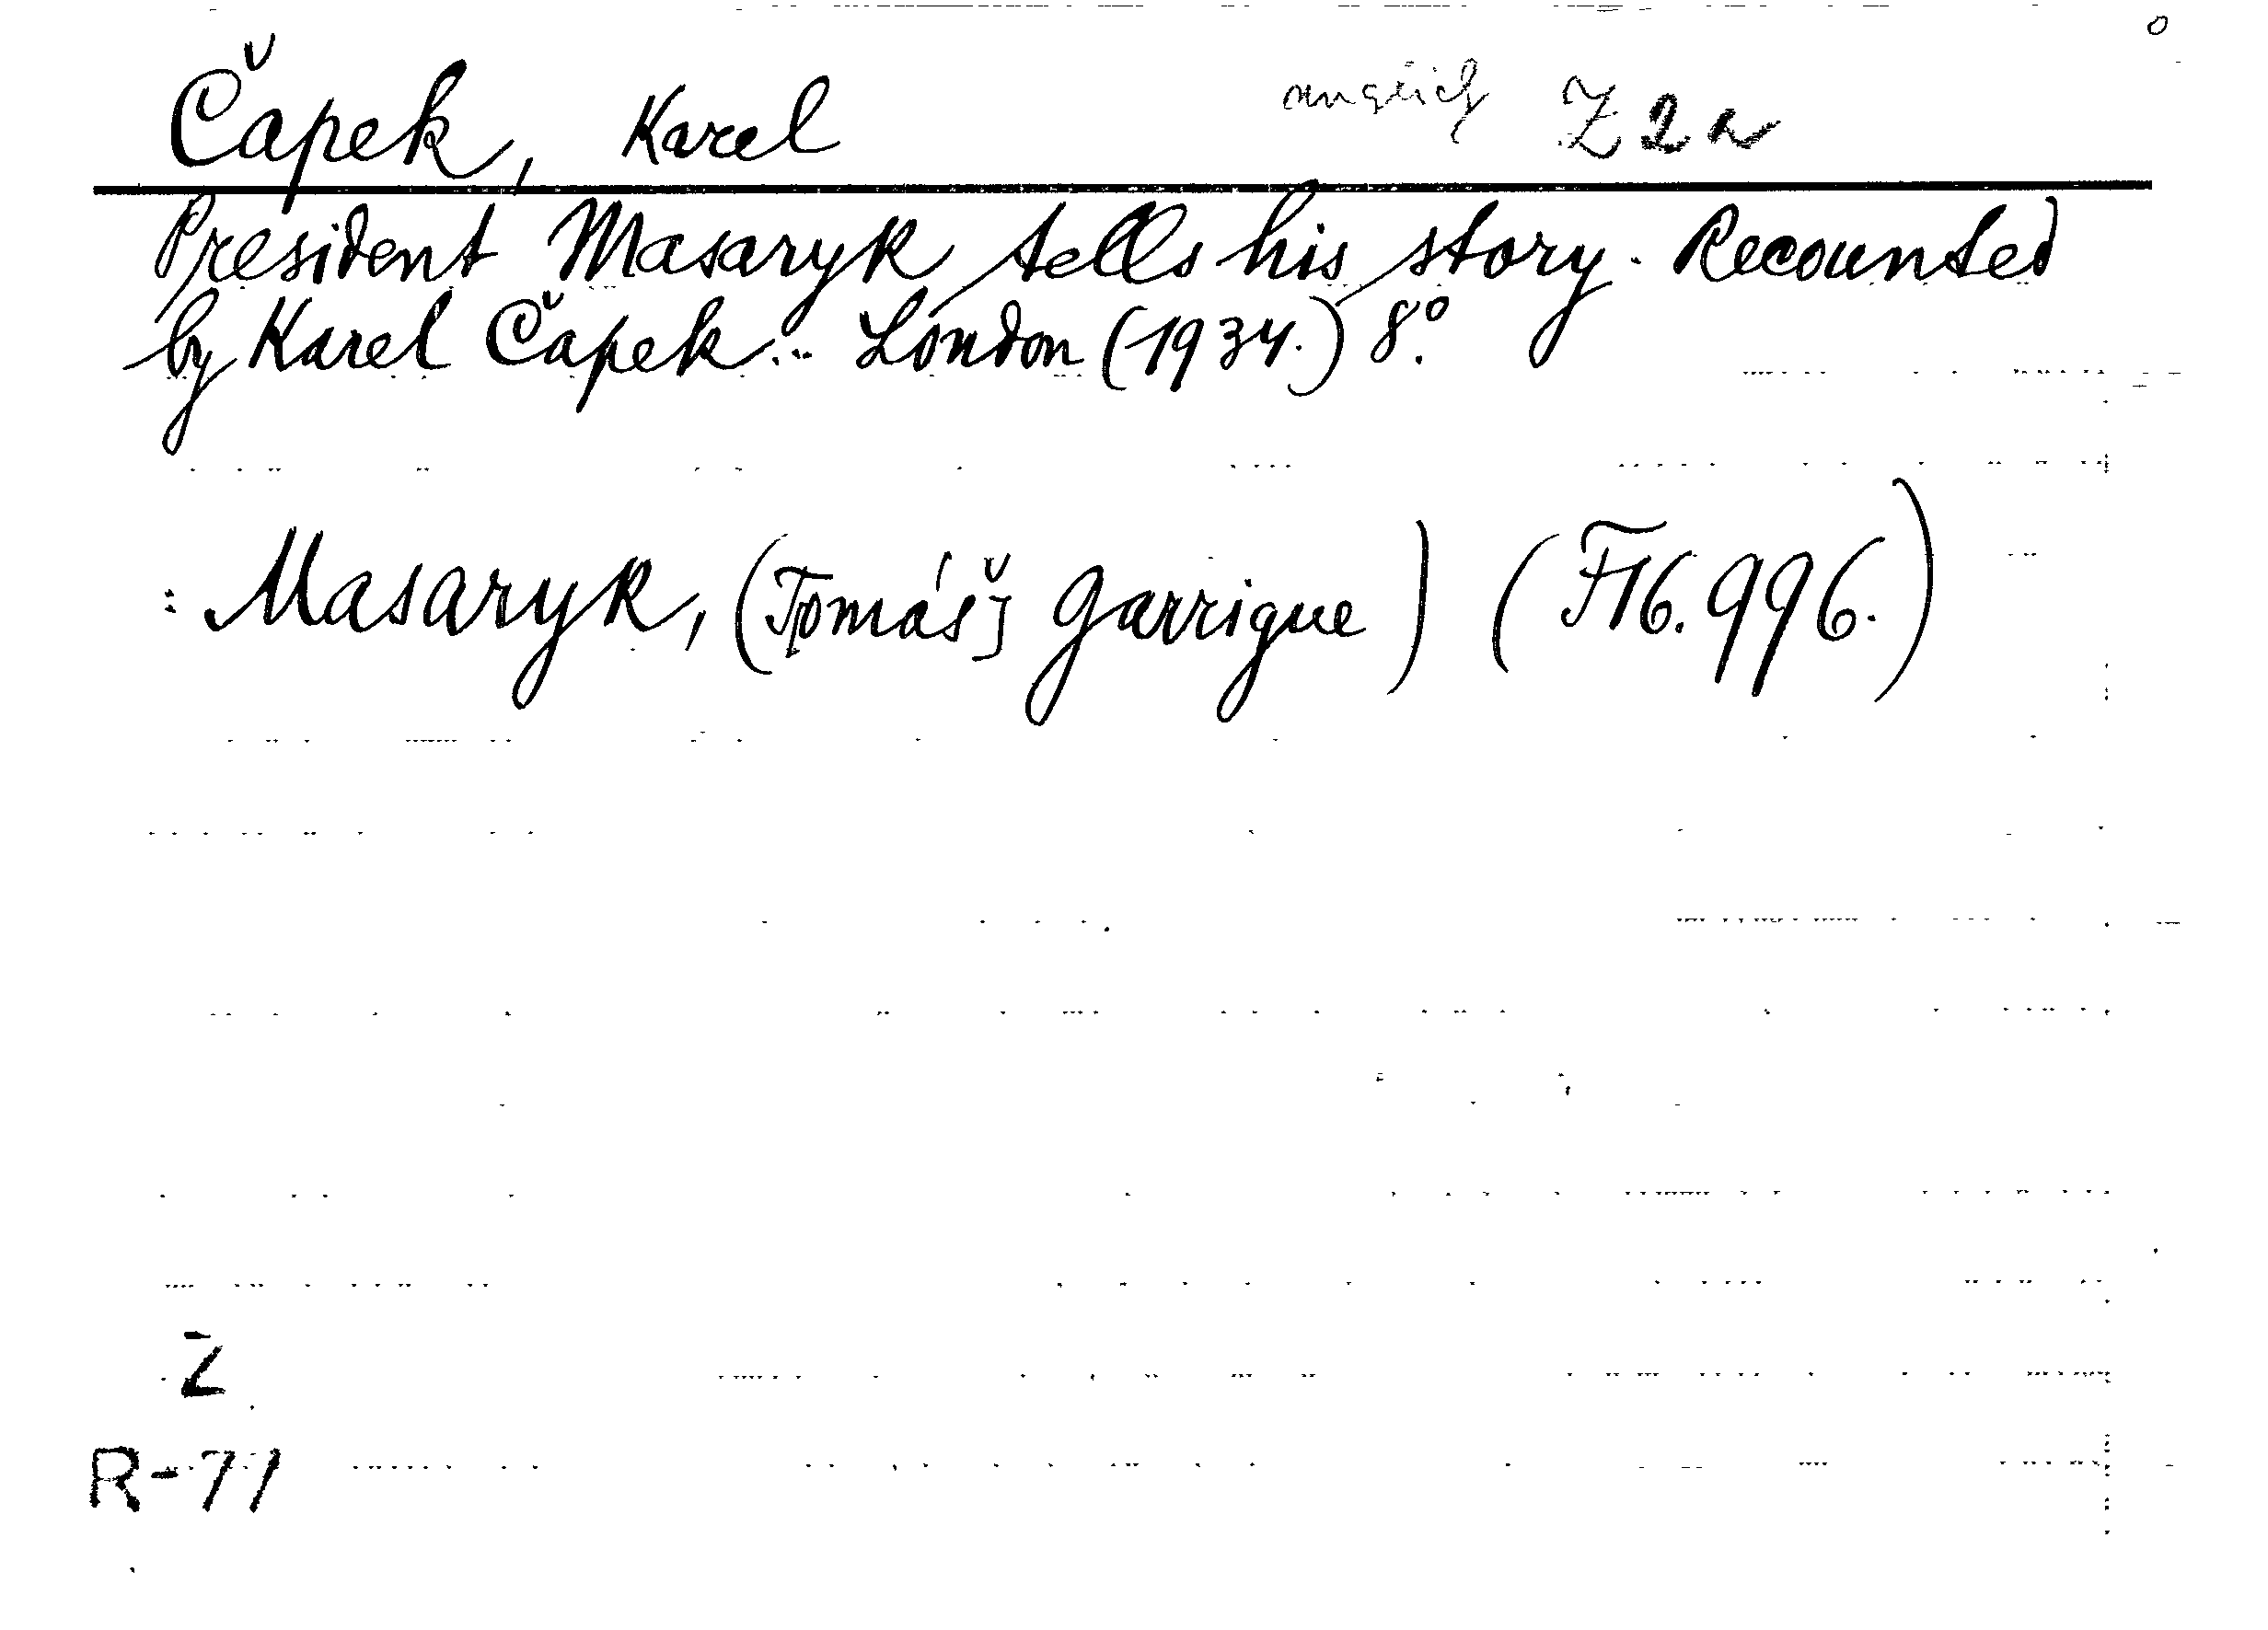 Čapek, Karel Z 2a
President Masaryk tells his story. Recounted
by Karel Čapek.. London (1934.) 8°.
: Masaryk, (Tomáš] Garrigue) (F16.996.)
Z
R-71